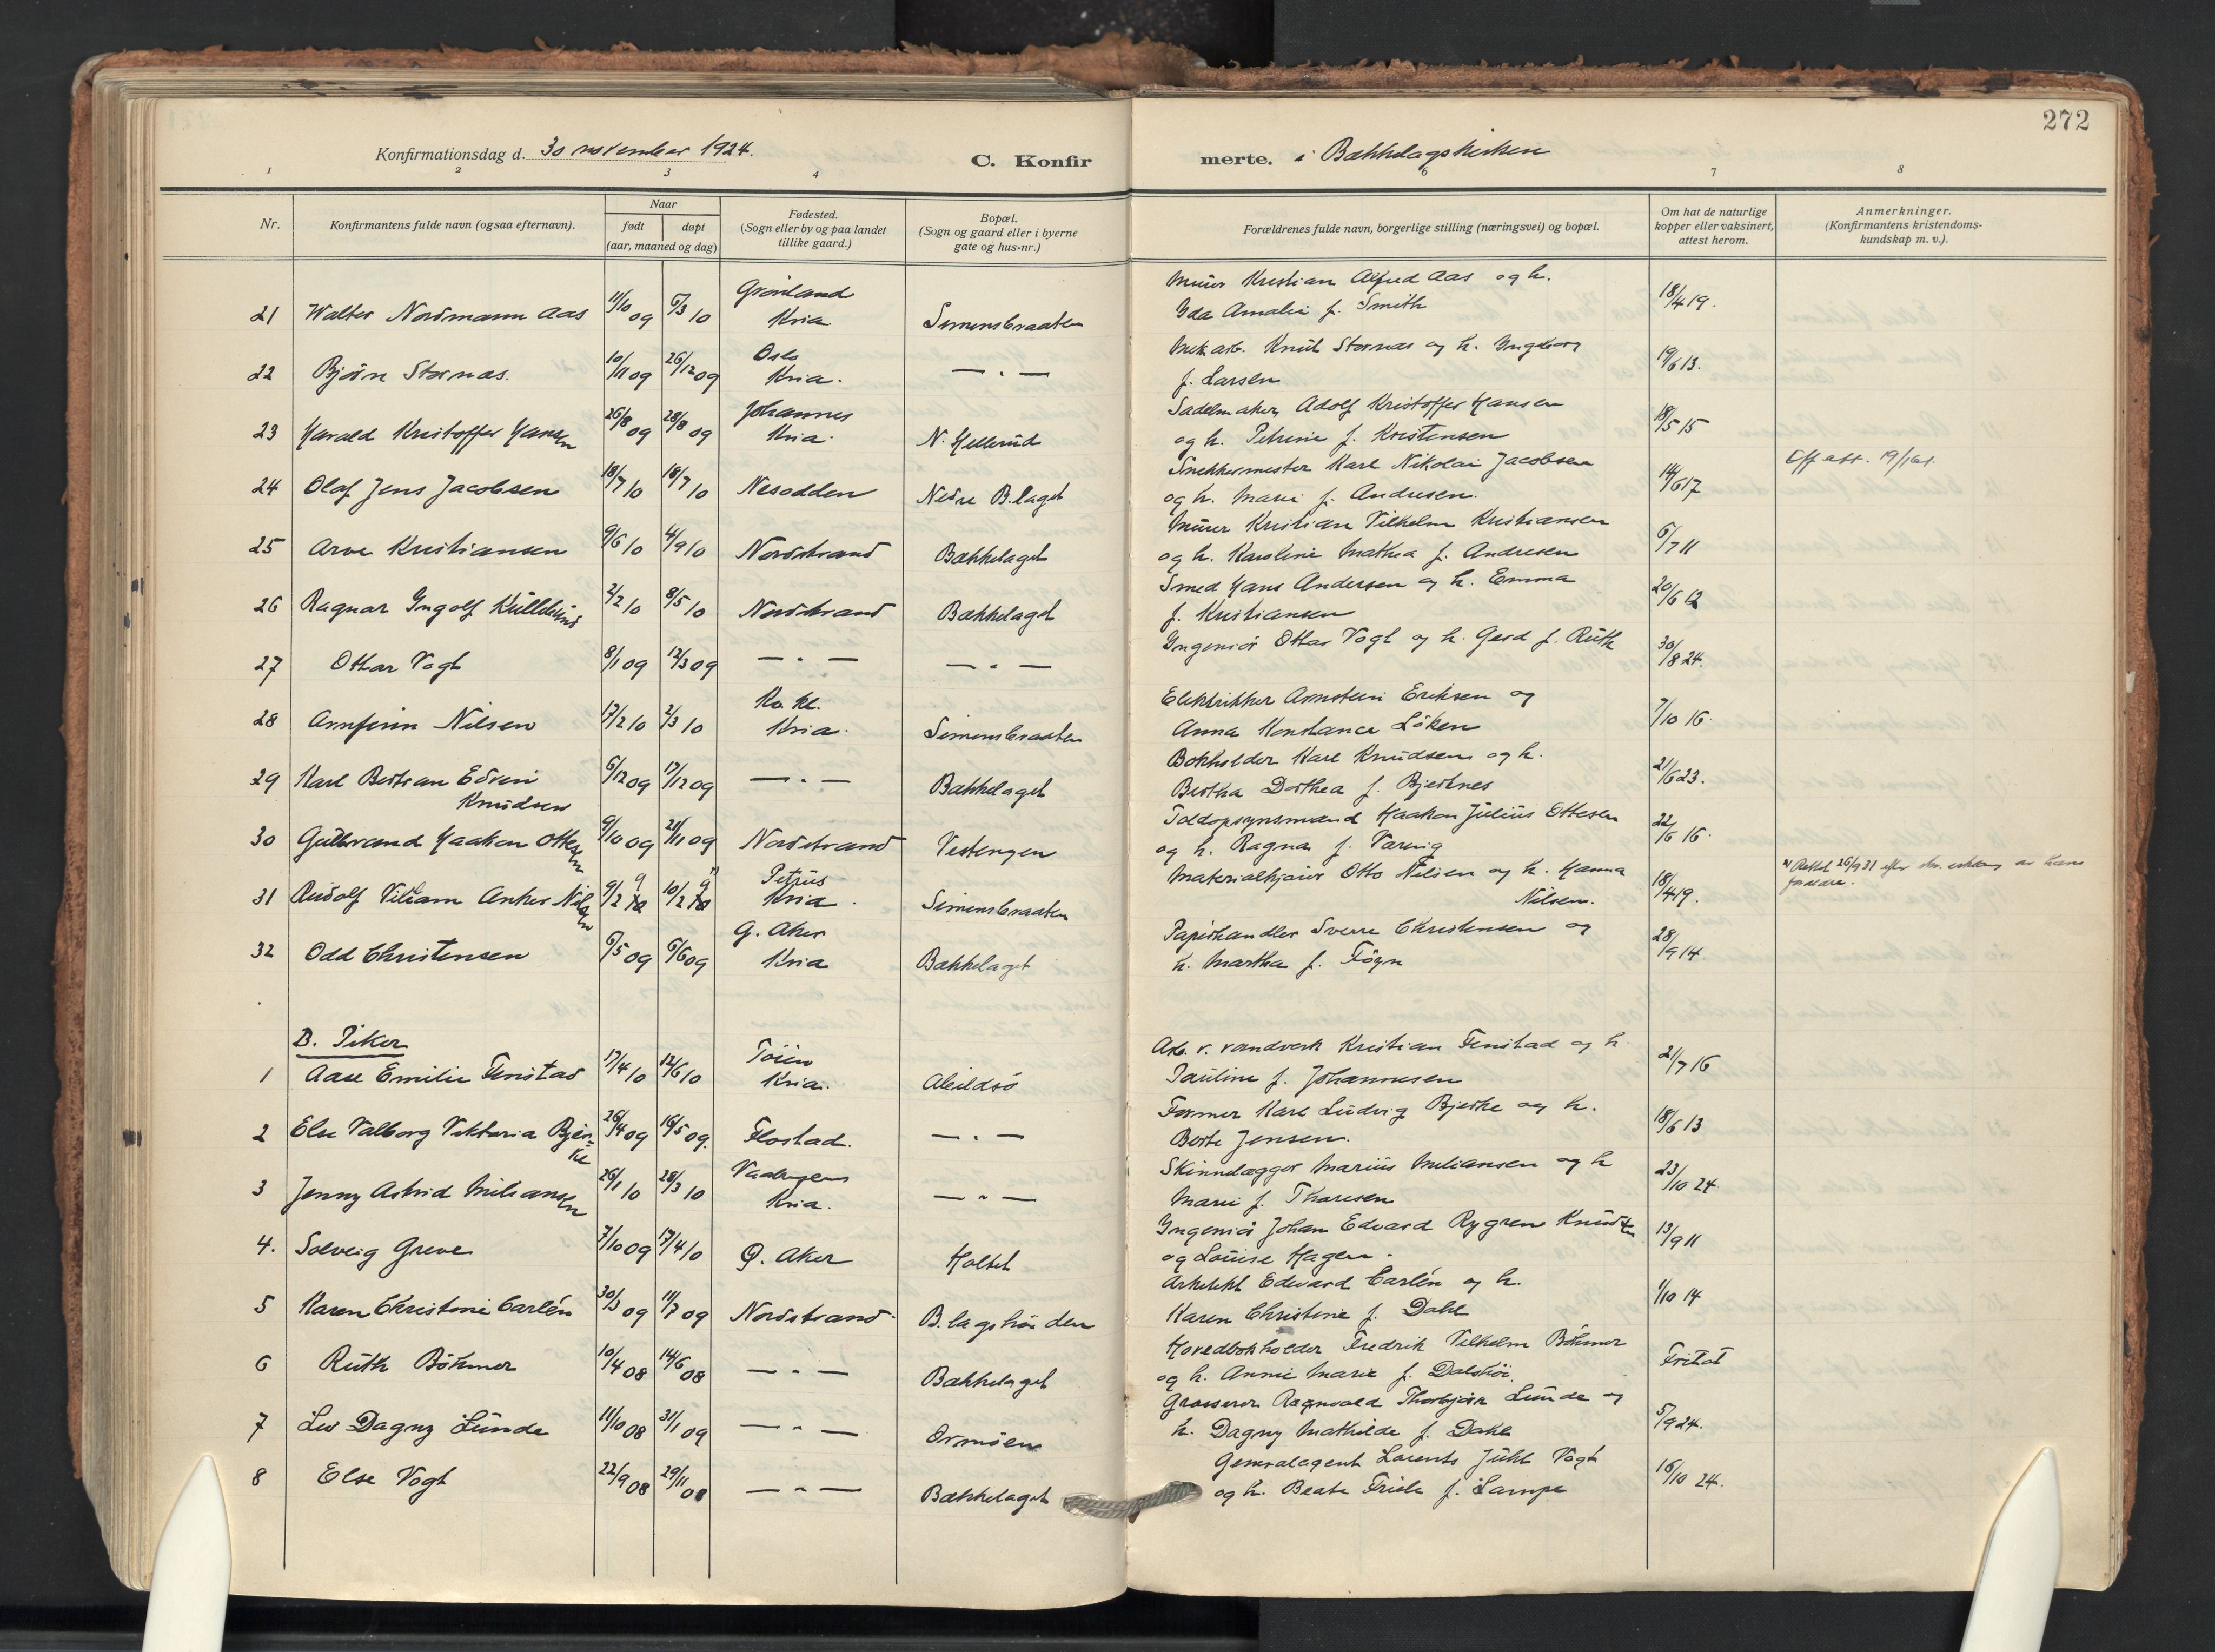 272
Konfirmationsdag d. 30 november 1924.
C. Konfirmerte. i Bækkelagskirken
1 2 3 4 6 7 8
Nr.
Konfirmantens fulde navn (ogsaa efternavn).
Naar
født døpt
(aar, maaned og dag)
Fødested.
(Sogn eller by og paa landet
tillike gaard.)
Bopæl.
(Sogn og gaard eller i byerne
gate og hus-nr.)
Forældrenes fulde navn, borgerlige stilling (næringsvei) og bopæl.
Om hat de naturlige
kopper eller vaksinert,
attest herom.
Anmerkninger.
(Konfirmantens kristendoms-
kundskap m. v.).
Grønland Murer Kristian Alfred Aas og h.
21 Walter Nordmann Aas 11/10 09 6/3 10 Kria Simensbraaten Ida Amalie f. Smith 18/4 19.
Oslo Mek. arb. Knut Stornæs og h. Ingeborg
22 Bjørn Stornæs. 10/11 09 26/12 09 Kria. — " — f. Larsen 19/6 13.
Johannes Sadelmaker Adolf Kristoffer Hansen
23 Harald Kristoffer Hansen 26/8 09 28/8 09 Kria. N. Hellerud og h. Petrine f. Kristensen 18/5 15
Snekkermester Karl Nikolai Jacobsen
24 Olaf Jens Jacobsen 18/7 10 18/7 10 Nesodden Nedre B.laget og h. Marie f. Andresen. 14/6 17 Eff. att. 19/1 61.
Murer Kristian Vilhelm Kristiansen
25 Arve Kristiansen 9/6 10 4/9 10 Nordstrand Bækkelaget og h. Karoline Mathea f. Andresen 6/7 11
Smed Hans Andersen og h. Emma
26 Ragnar Ingolf 2/2 10 8/5 10 Nordstrand Bækkelaget f. Kristiansen 20/6 12
27 Ottar Vogt 8/1 09 12/3 09 — " — — " — Ingeniør Ottar Vogt og h. Gerd f. Ruth 30/8 24.
Ka. kl. Elektrikker Arnstein Eriksen og
28 Arnfinn Nilsen 17/2 10 2/3 10 Kria. Simensbraaten Anna Konstance Løken 7/10 16.
Bokholder Karl Knudsen og h.
29 Karl Bertran Edvin 6/12 09 17/12 09 — " — Bækkelaget Bertha Dorthea f. Bjerknes 21/6 23.
Knudsen
Toldopsynsmand Haakon Julius Ottesen
30 Gulbrand Haakon Ottesen 9/10 09 21/11 09 Nordstrand Vestengen og h. Ragna f. 22/6 16.
Petrus Materialkjører Otto Nilsen og h. Hanna
31 Rudolf Viliam Anker Nilsen 9/2 9 10/2 9 Kria. Simensbraaten Nilsen. 18/4 19. x) Rettet 26/9 31 efter av hans forældre.
G. Aker Papirhandler Sverre Christensen og
32 Odd Christensen 6/5 09 6/6 09 Kria Bækkelaget h. Martha f. Fögn 28/9 14
B. Piker
Töien Arb. v. vandverk Kristian Fenstad og h.
1 Aase Emilie Fenstad 17/4 10 12/6 10 Kria. Abildsö Pauline f. Johannesen 21/7 16
Former Karl Ludvig Bjerke og h.
2 Else Valborg Viktoria Bjerke 26/4 09 16/5 09. Flostad. — " — Berte Jensen. 18/6 13
Vaalengen Skinnlægger Marius Miliansen og h
3 Jenny Astrid Miliansen 26/1 10 28/3 10 Kria. — " — Marie f. Thoresen 23/10 24
Ingeniør Johan Edvard Rygren Knudsen
4. Solveig Greve 7/10 09 17/4 10 Ø. Aker Holtet og Louise Hagen. 13/9 11
Arkitekt Edevard Carlén og h.
5 Karen Christine Carlén 30/3 09 11/7 09 Nordstrand B.lagshöiden Karen Christine f. Dahl 1/10 14
Hovedbokholder Fredrik Vilhelm Böhmer
6 Ruth Böhmer 10/4 08 14/6 08 — " — Bækkelaget og h. Annie Marie f. Fritat
Grosserer Ragnvald Thorbjörn Lunde og
7 Liv Dagny Lunde 11/10 08 31/1 09 — " — Ormöien h. Dagny Mathilde f. Dahl 5/9 24.
Generalagent Lorents Juhl Vogt
8 Else Vogt 22/9 08 29/11 08 — " — Bækkelaget og h. Beate Friele f. Lampe 16/10 24.